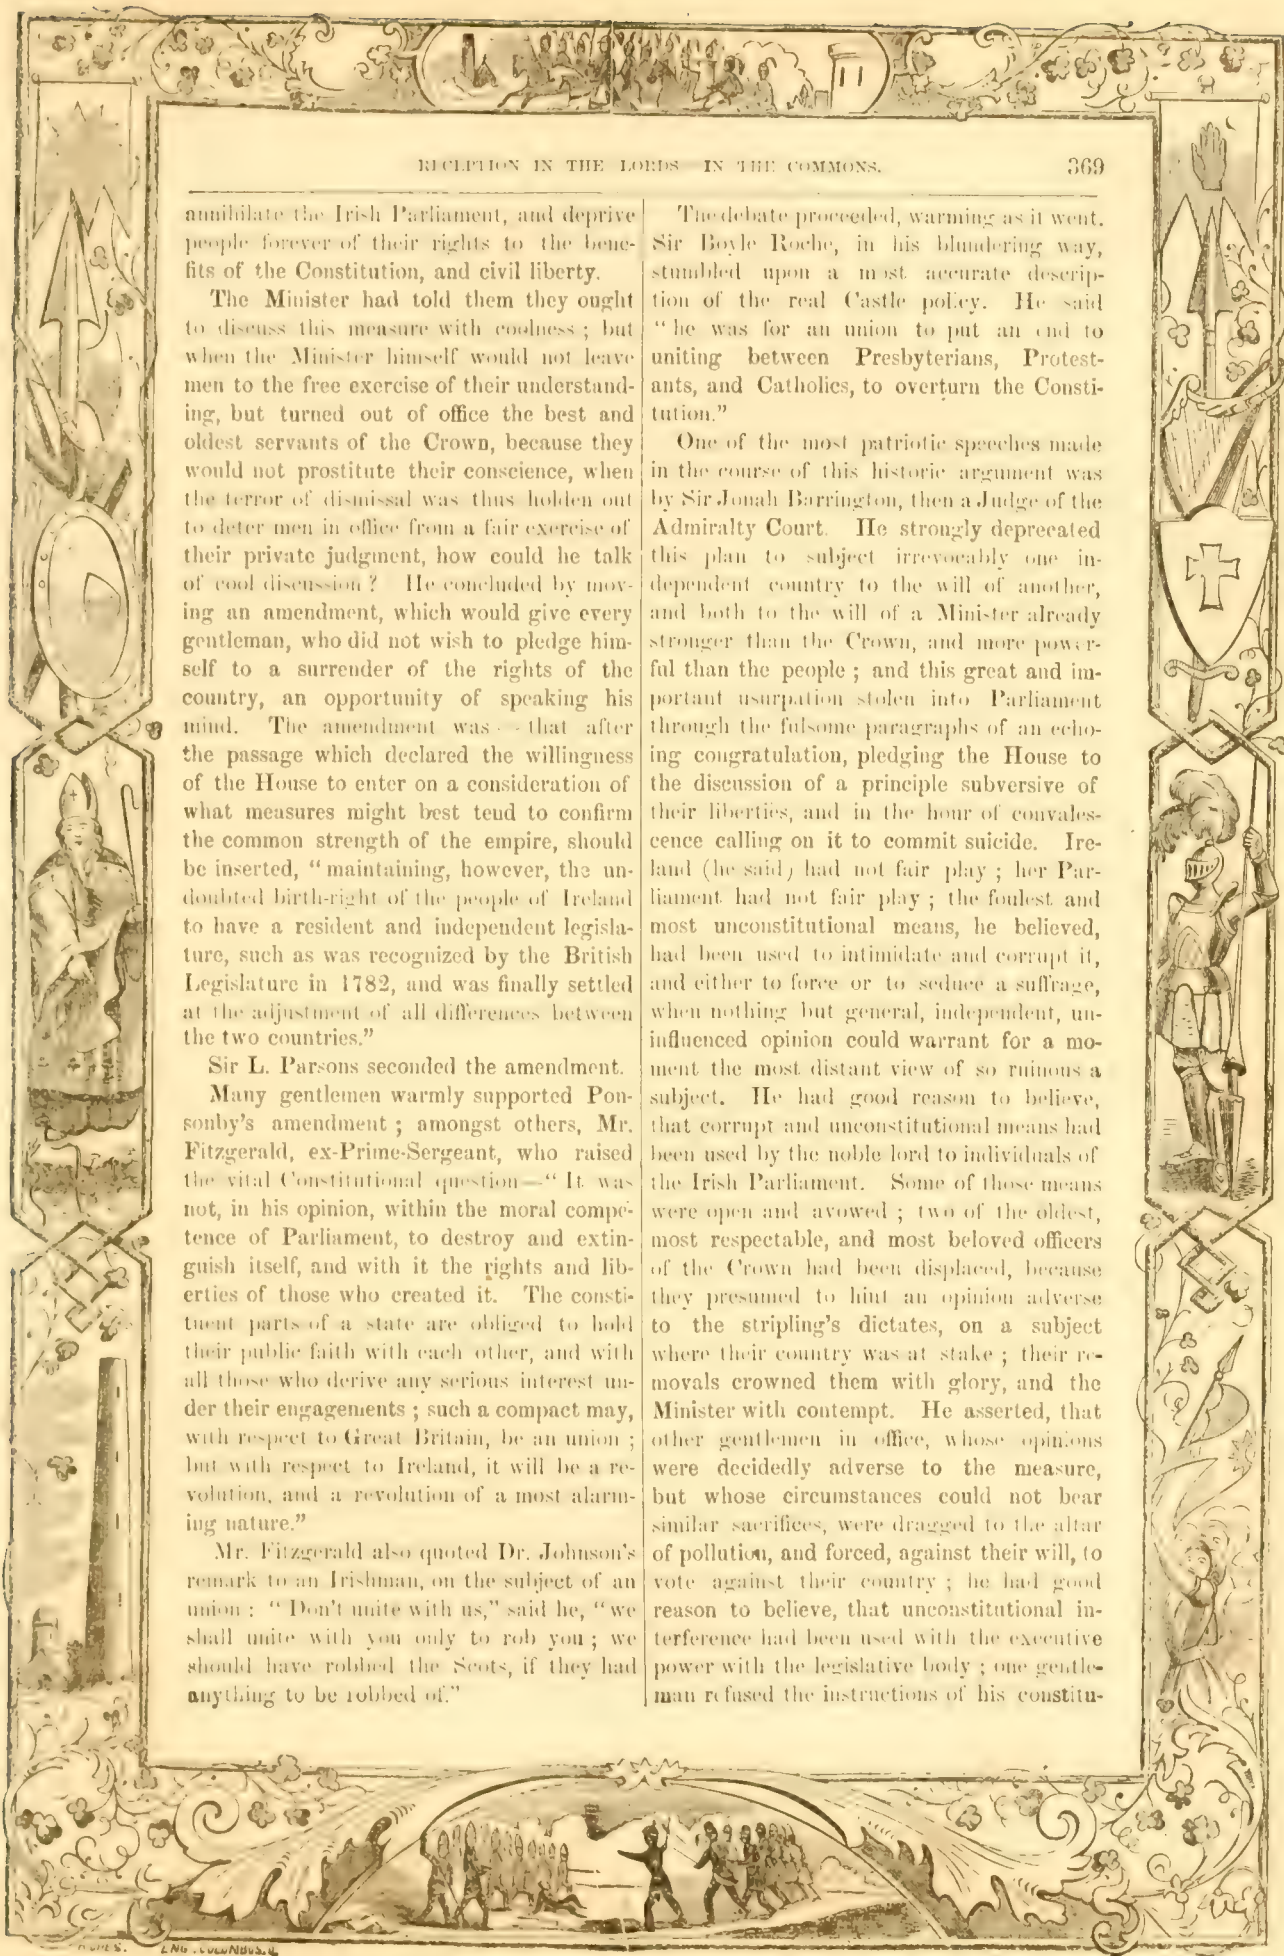 RECEPTION IN THE LORDS IN THE COMMONS. 369
annihilate the Irish Parliament, and deprive
people forever of their rights to the bene-
fits of the Constitution, and civil liberty.
The Minister had told them they ought
to discuss this measure with coolness ; but
when the Minister himself would not leave
men to the free exercise of their understand-
ing, but turned out of office the best and
oldest servants of the Crown, because they
would not prostitute their conscience, when
the terror of dismissal was thus holden out
to deter men in office from a fair exercise of
their private judgment, how could he talk
of cool discussion ? He concluded by mov-
ing an amendment, which would give every
gentleman, who did not wish to pledge him-
self to a surrender of the rights of the
country, an opportunity of speaking his
mind. The amendment was - - that after
the passage which declared the willingness
of the House to enter on a consideration of
what measures might best tend to confirm
the common strength of the empire, should
be inserted, " maintaining, however, the un-
doubted birth-right of the people of Ireland
to have a resident and independent legisla-
ture, such as was recognized by the British
Legislature in 1782, and was finally settled
at the adjustment of all differences between
the two countries."
Sir L. Parsons seconded the amendment.
Many gentlemen warmly supported Pon-
sonby's amendment ; amongst others, Mr.
Fitzgerald, ex-Prime-Sergeant, who raised
the vital Constitutional question—" It was
not, in his opinion, within the moral compe-
tence of Parliament, to destroy and extin-
guish itself, and with it the rights and lib-
erties of those who created it. The consti-
tuent parts of a state are obliged to hold
their public faith with each other, and with
all those who derive any serious interest un-
der their engagements ; such a compact may,
with respect to Great Britain, be an union ;
but with respect to Ireland, it will be a re-
volution, and a revolution of a most alarm-
ing nature."
Mr. Fitzgerald also quoted Dr. Johnson's
remark to an Irishman, on the subject of an
union : " Don't unite with us," said he, " we
shall unite with you only to rob you ; we
should have robbed the Scots, if they had
anything to be robbed of."
The debate proceeded, warming as it went.
Sir Boyle Roche, in his blundering way,
stumbled upon a most accurate descrip-
tion of the real Castle policy. He said
" he was for an union to put an end to
uniting between Presbyterians, Protest-
ants, and Catholics, to overturn the Consti-
tution."
One of the most patriotic speeches made
in the course of this historic argument was
by Sir Jonah Barrington, then a Judge of the
Admiralty Court. He strongly deprecated
this plan to subject irrevocably one in-
dependent country to the will of another,
and both to the will of a Minister already
stronger than the Crown, and more power-
ful than the people ; and this great and im-
portant usurpation stolen into Parliament
through the fulsome paragraphs of an echo-
ing congratulation, pledging the House to
the discussion of a principle subversive of
their liberties, and in the hour of convales-
cence calling on it to commit suicide. Ire-
land (he said) had not fair play ; her Par-
liament had not fair play ; the foulest and
most unconstitutional means, he believed,
had been used to intimidate and corrupt it,
and either to force or to seduce a suffrage,
when nothing but general, independent, un-
influenced opinion could warrant for a mo-
ment the most distant view of so ruinous a
subject. He had good reason to believe,
that corrupt and unconstitutional means had
been used by the noble lord to individuals of
the Irish Parliament. Some of those means
were open and avowed ; two of the oldest,
most respectable, and most beloved officers
of the Crown had been displaced, because
they presumed to hint an opinion adverse
to the stripling's dictates, on a subject
where their country was at stake ; their re-
movals crowned them with glory, and the
Minister with contempt. He asserted, that
other gentlemen in office, whose opinions
were decidedly adverse to the measure,
but whose circumstances could not bear
similar sacrifices, were dragged to the altar
of pollution, and forced, against their will, to
vote against their country ; he had good
reason to believe, that unconstitutional in-
terference had been used with the executive
power with the legislative body ; one gentle-
man refused the instructions of his constitu-
ENG. COLUMBUS. O.